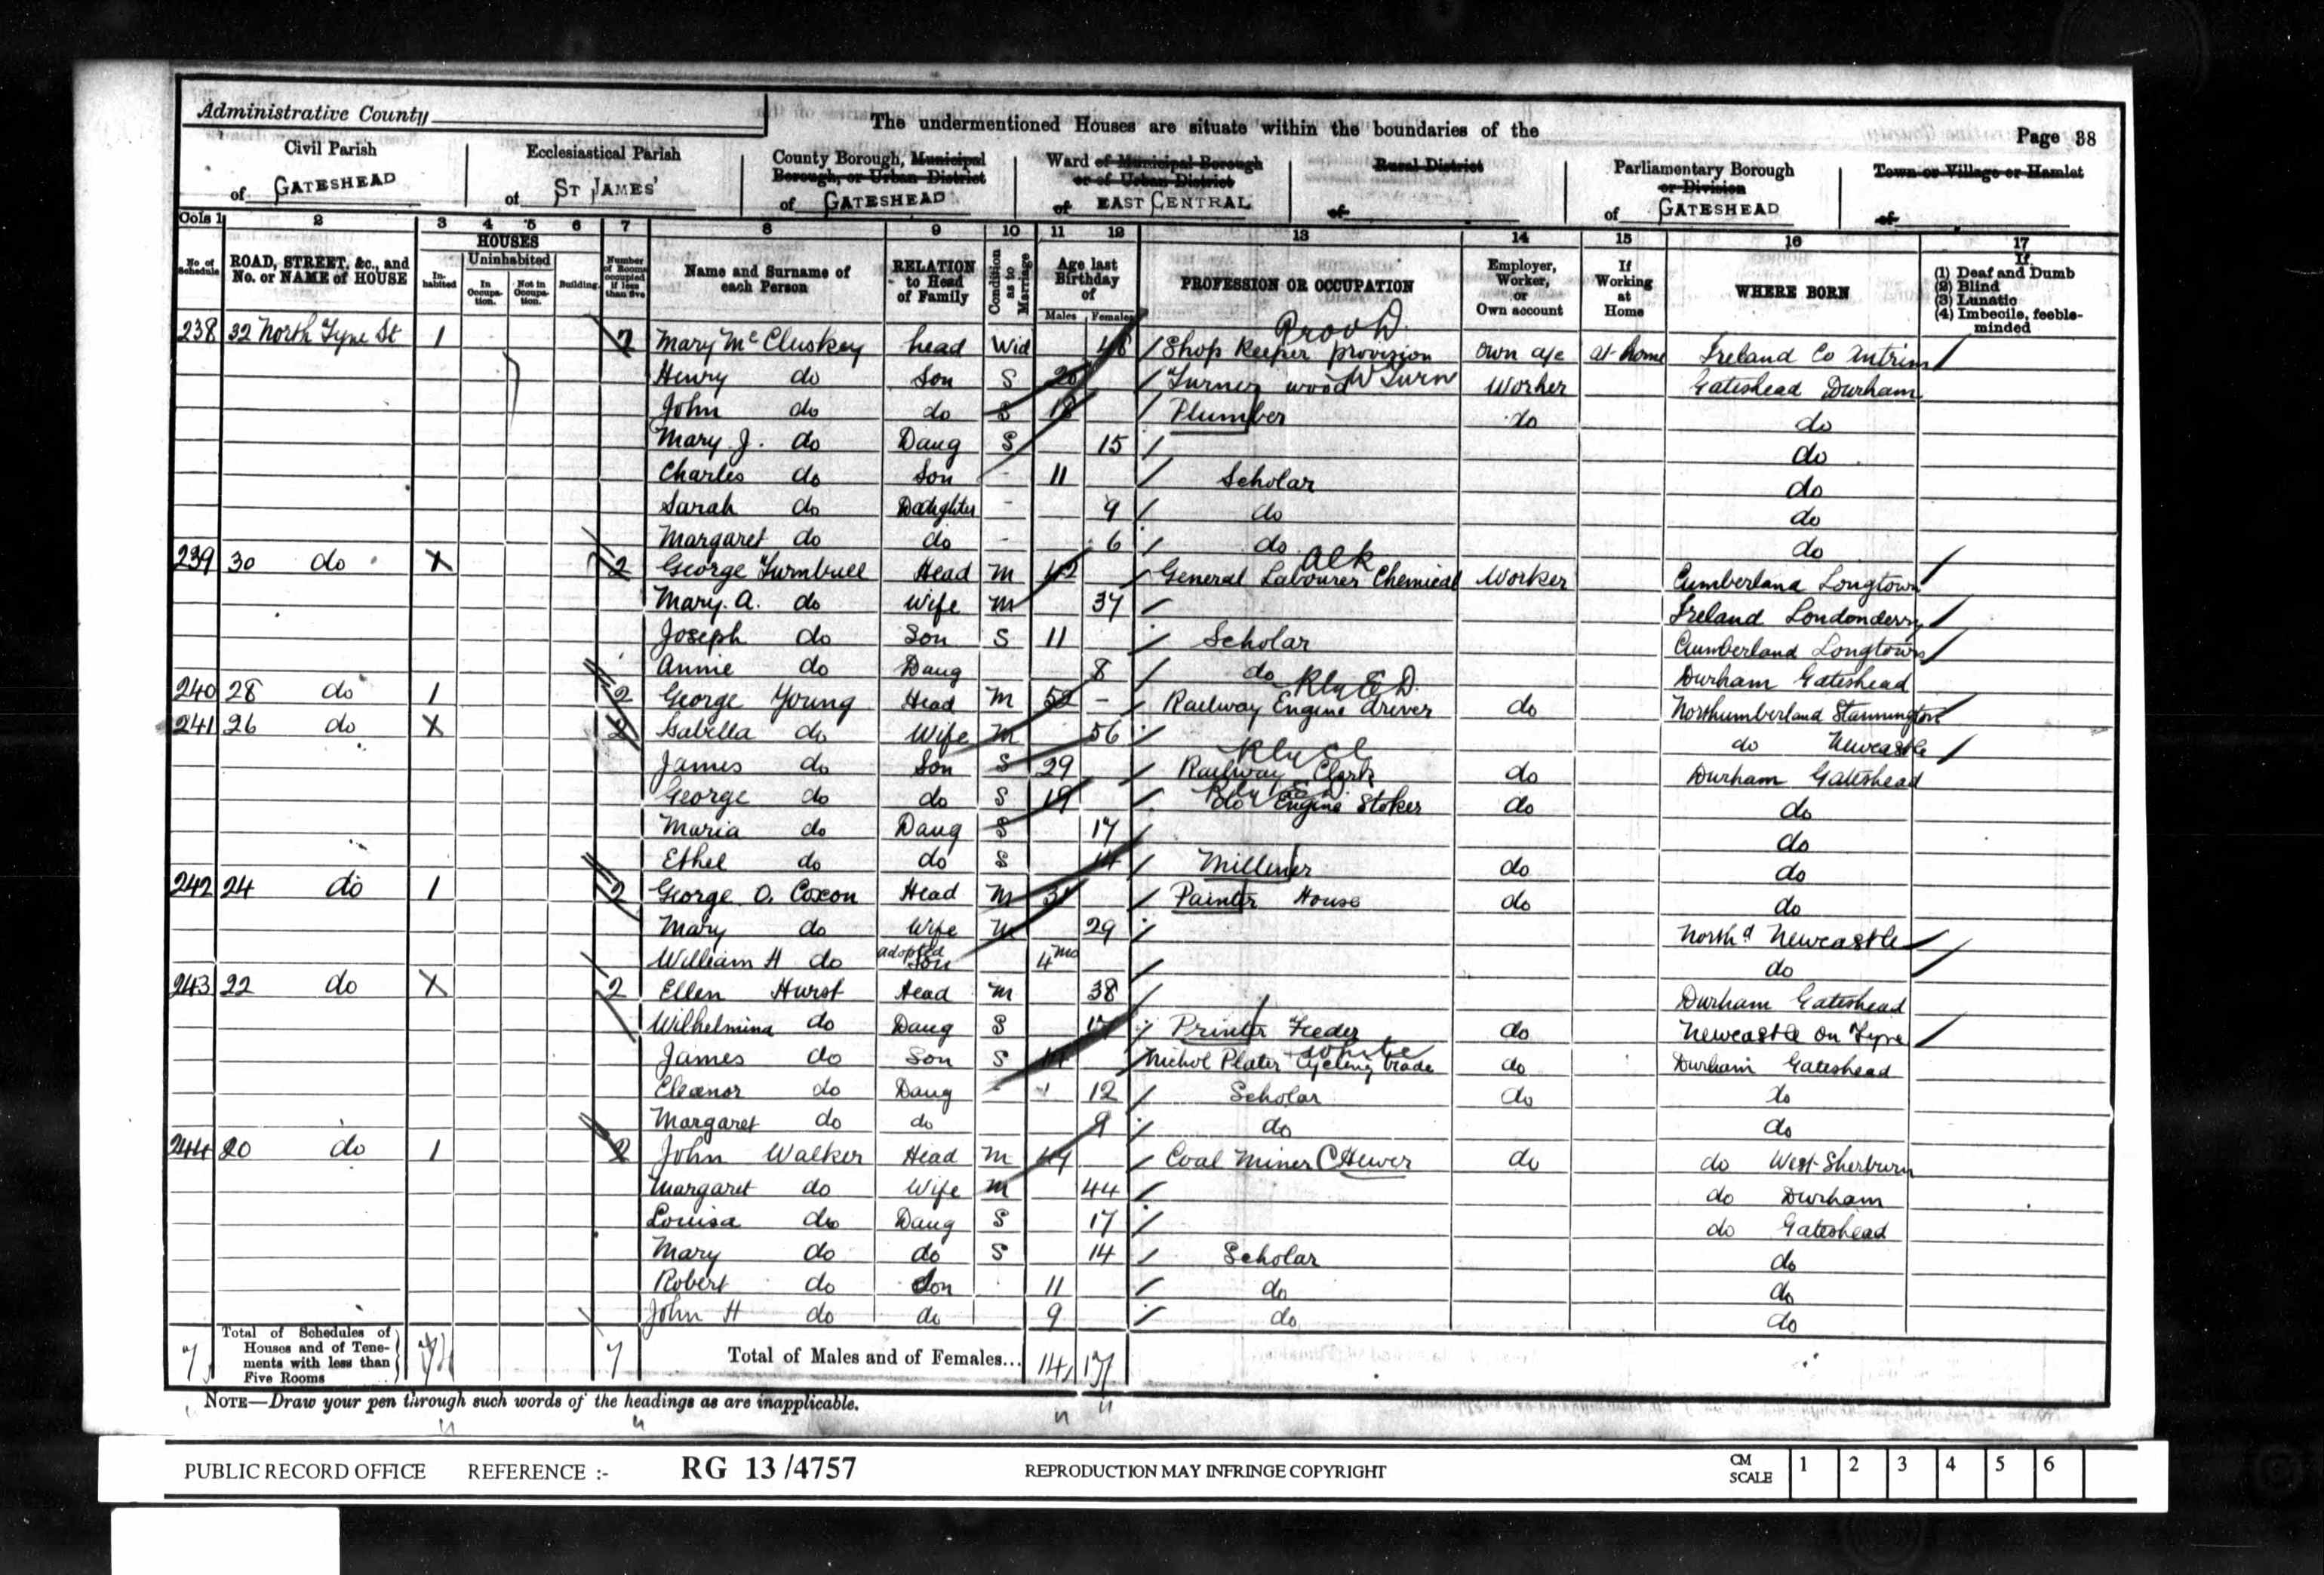 Administrative County
The undermentioned Houses are situate within the boundaries of the
Page 38
Civil Parish
of GATESHEAD
Ecclesiastical Parish
of ST JAMES'
County Borough, Municipal
Borough, or Urban District
of GATESHEAD
Ward of Municipal Borough
or of Urban District
of EAST CENTRAL
Rural District
of
Parliamentary Borough
or Division
of GATESHEAD
Town or Village or Hamlet
of
Cols 1 2 3 4 5 6 7 8 9 10 11 12 13 14 15 16 17
No of Schedule
ROAD, STREET, &c., and No. or NAME of HOUSE
HOUSES
In-habited
Uninhabited
In Occupa-tion.
Not in Occupa-tion.
Building.
Number of Rooms occupied if less than five
Name and Surname of each Person
RELATION to Head of Family
Condition as to Marriage
Age last Birthday of
Males Females
PROFESSION OR OCCUPATION
Employer, Worker, or Own account
If Working at Home
WHERE BORN
If
(1) Deaf and Dumb
(2) Blind
(3) Lunatic
(4) Imbecile, feeble-minded
238 32 North Tyne St 1 2 Mary McCluskey head Wid 48 Shop Keeper provision Own a/c at home Ireland Co Antrim
Henry do Son S 20 Turner wood W Turn Worker Gateshead Durham
John do do S 18 Plumber do do
Mary J. do Daug S 15 do
Charles do Son - 11 Scholar do
Sarah do Daughter - 9 do do
Margaret do do - 6 do do
239 30 do X 2 George Turnbull Head M 42 General Labourer Chemical Worker Cumberland Longtown
Mary. A. do Wife M 37 Ireland Londonderry
Joseph do Son S 11 Scholar Cumberland Longtown
Annie do Daug 8 do Durham Gateshead
240 28 do 1 2 George Young Head M 52 - Railway Engine driver do Northumberland Stannington
241 26 do X 2 Isabella do Wife M 56 do Newcastle
James do Son S 29 Railway Clerk do Durham Gateshead
George do do S 19 do Engine Stoker do do
Maria do Daug S 17 do
Ethel do do S 14 Milliner do do
242 24 do 1 2 George O. Coxon Head M 31 Painter House do do
Mary do Wife M 29 Northd Newcastle
William H do adopted Son 4 mo do
243 22 do X 2 Ellen Hurst Head M 38 Durham Gateshead
Wilhelmina do Daug S 17 Printer Feeder do Newcastle on Tyne
James do Son S 14 Nichol Plater Cycling trade do Durham Gateshead
Eleanor do Daug - 12 Scholar do do
Margaret do do 9 do do
244 20 do 1 2 John Walker Head M 49 Coal Miner C Hewer do do West Sherburn
Margaret do Wife M 44 do Durham
Louisa do Daug S 17 do Gateshead
Mary do do S 14 Scholar do
Robert do Son 11 do do
John H do do 9 do do
7 Total of Schedules of Houses and of Tene-ments with less than Five Rooms 7 Total of Males and of Females... 14 17
NOTE—Draw your pen through such words of the headings as are inapplicable.
PUBLIC RECORD OFFICE REFERENCE :- RG 13/4757 REPRODUCTION MAY INFRINGE COPYRIGHT CM SCALE 1 2 3 4 5 6